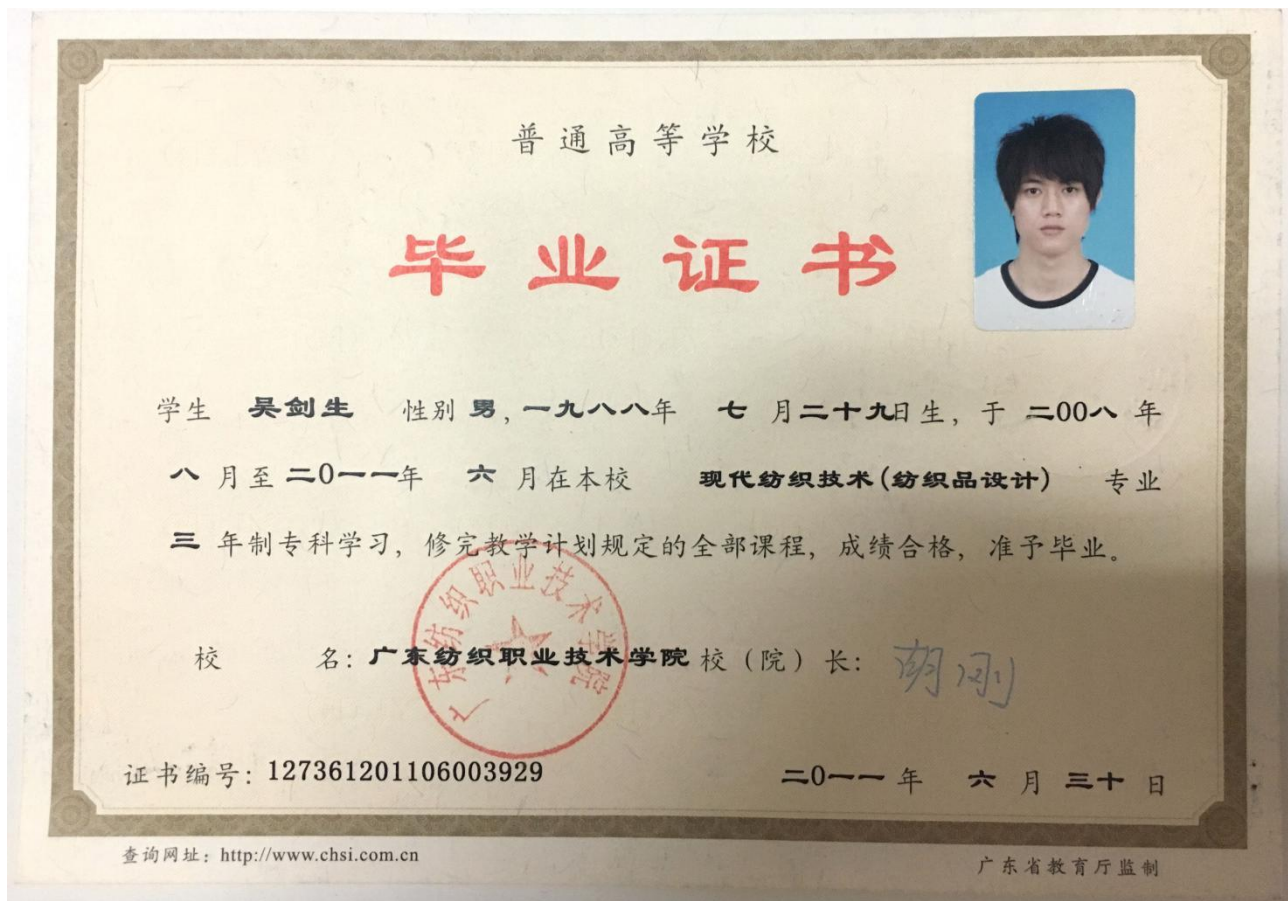 普通高等学校
毕业证书
学生 吴剑生 性别 男,一九八八年 七 月二十九日生,于 二00八 年
八 月至 二0一一年 六 月在本校 现代纺织技术(纺织品设计) 专业
三 年制专科学习,修完教学计划规定的全部课程,成绩合格,准予毕业。
广东纺织职业技术学院
校 名:广东纺织职业技术学院 校(院)长:胡刚
证书编号:127361201106003929 二0一一 年 六 月 三十 日
查询网址:http://www.chsi.com.cn 广东省教育厅监制